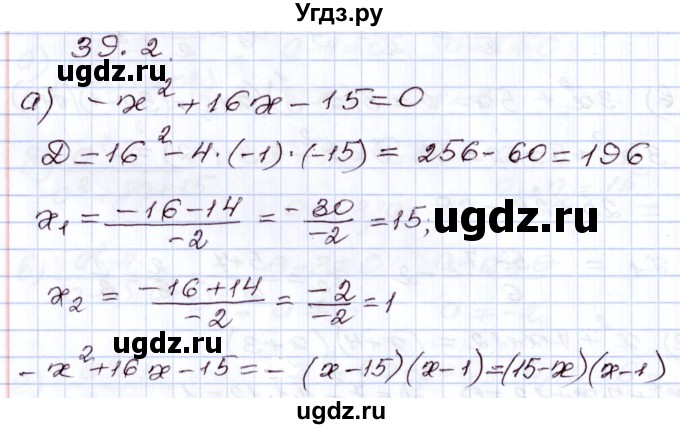 Угдз.ру
39.2.
ugdz.ru ugdz.ru
а) -x² + 16x - 15 = 0
Д = 16² - 4·(-1)·(-15) = 256 - 60 = 196
x₁ = \frac{-16-14}{-2} = \frac{-30}{-2} = 15;
ugdz.ru
x₂ = \frac{-16+14}{-2} = \frac{-2}{-2} = 1
ugdz.ru ugdz.ru
-x² + 16x - 15 = -(x-15)(x-1) = (15-x)(x-1)
ugdz.ru